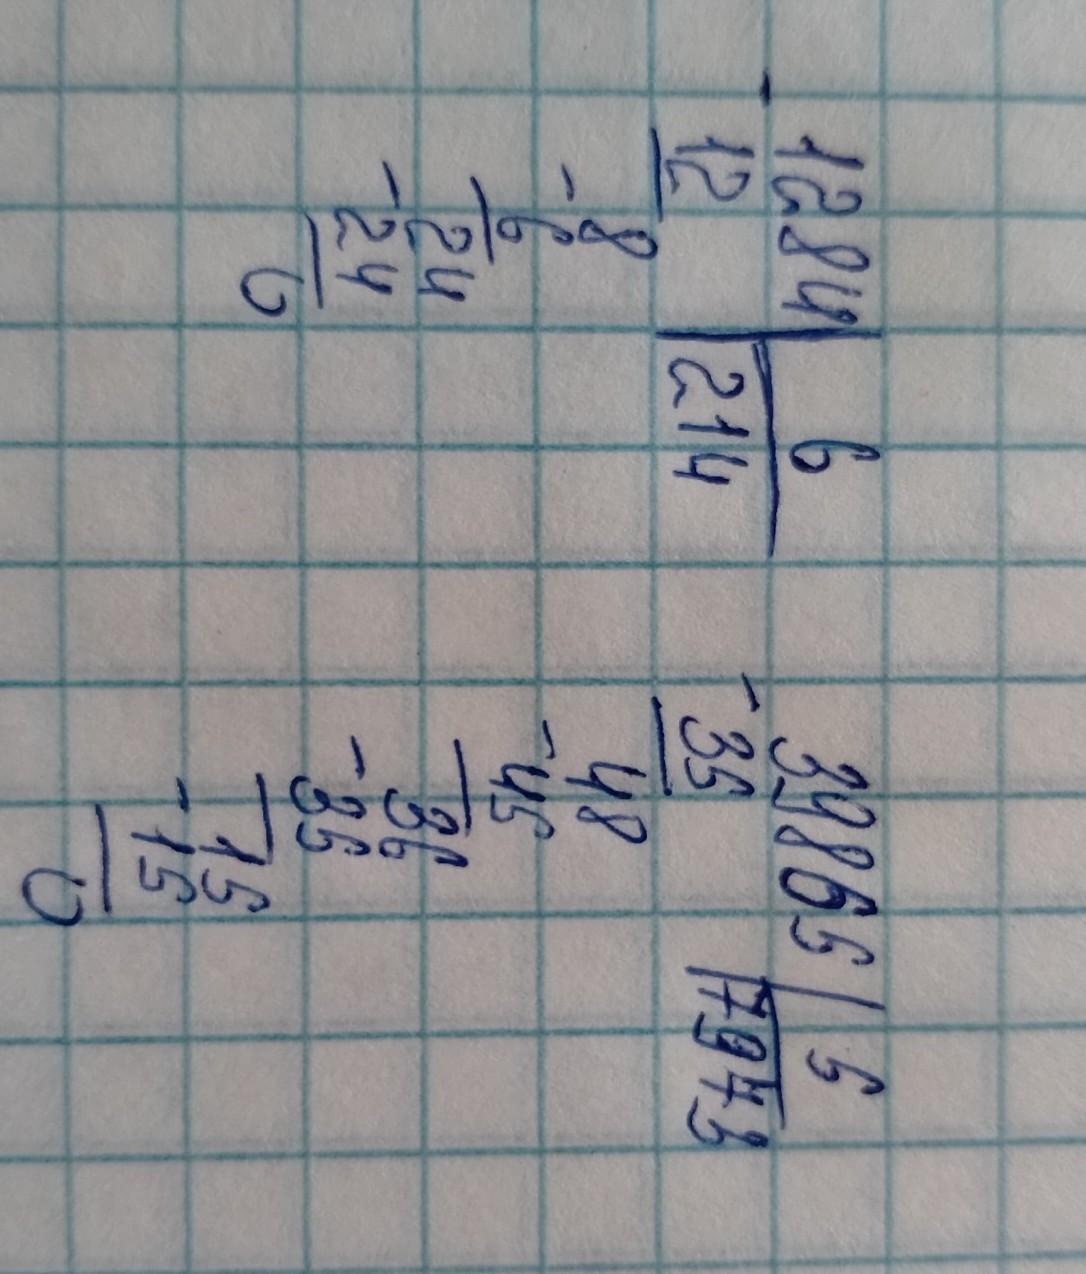 1284 | 6
- 12 | 214
8
- 6
24
- 24
0
39865 | 5
- 35 | 7973
48
- 45
36
- 35
15
- 15
0